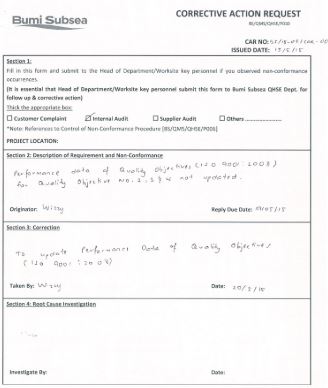 Bumi Subsea
CORRECTIVE ACTION REQUEST
BS/QMS/QHSE/F010
CAR NO:
ISSUED DATE: 15/5/15
Section 1:
Fill in this form and submit to the Head of Department/Worksite key personnel if you observed non-conformance
occurrences.
(It is essential that Head of Department/Worksite key personnel submit this form to Bumi Subsea QHSE Dept. for
follow up & corrective action)
Thick the appropriate box:
Customer Complaint Internal Audit Supplier Audit Others ............
*Note: References to Control of Non-Conformance Procedure [BS/QMS/QHSE/P006]
PROJECT LOCATION:
Section 2: Description of Requirement and Non-Conformance
Performance data of Quality Objectives (ISO 9001:2008)
for Quality Objective no. not updated.
Originator: Wizzy Reply Due Date: /05/15
Section 3: Correction
To update Performance Data of Quality Objectives
(ISO 9001:2008)
Taken By: Wizzy Date: 20/5/15
Section 4: Root Cause Investigation
Investigate By: Date: